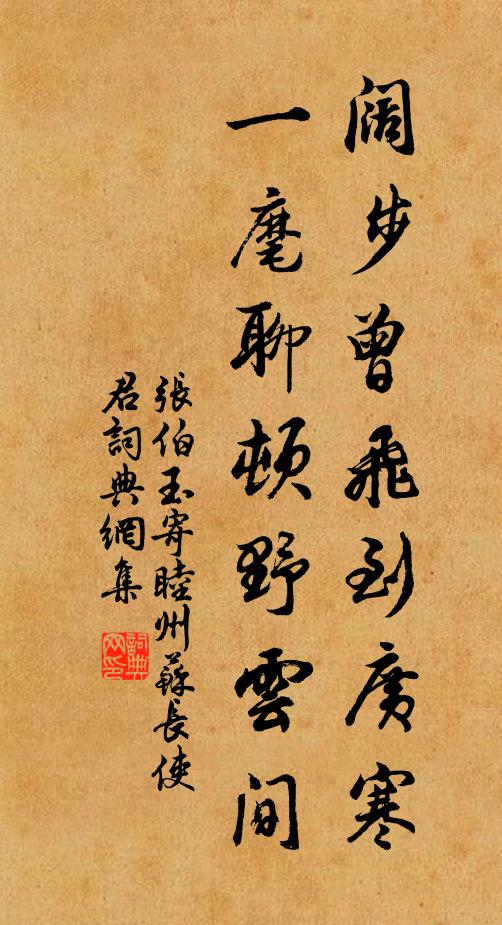 阔步曾飛到廣寒
一麾聊頓野雲間
張伯玉寄睦州蘇長使
君詞典網集
詞典
网印